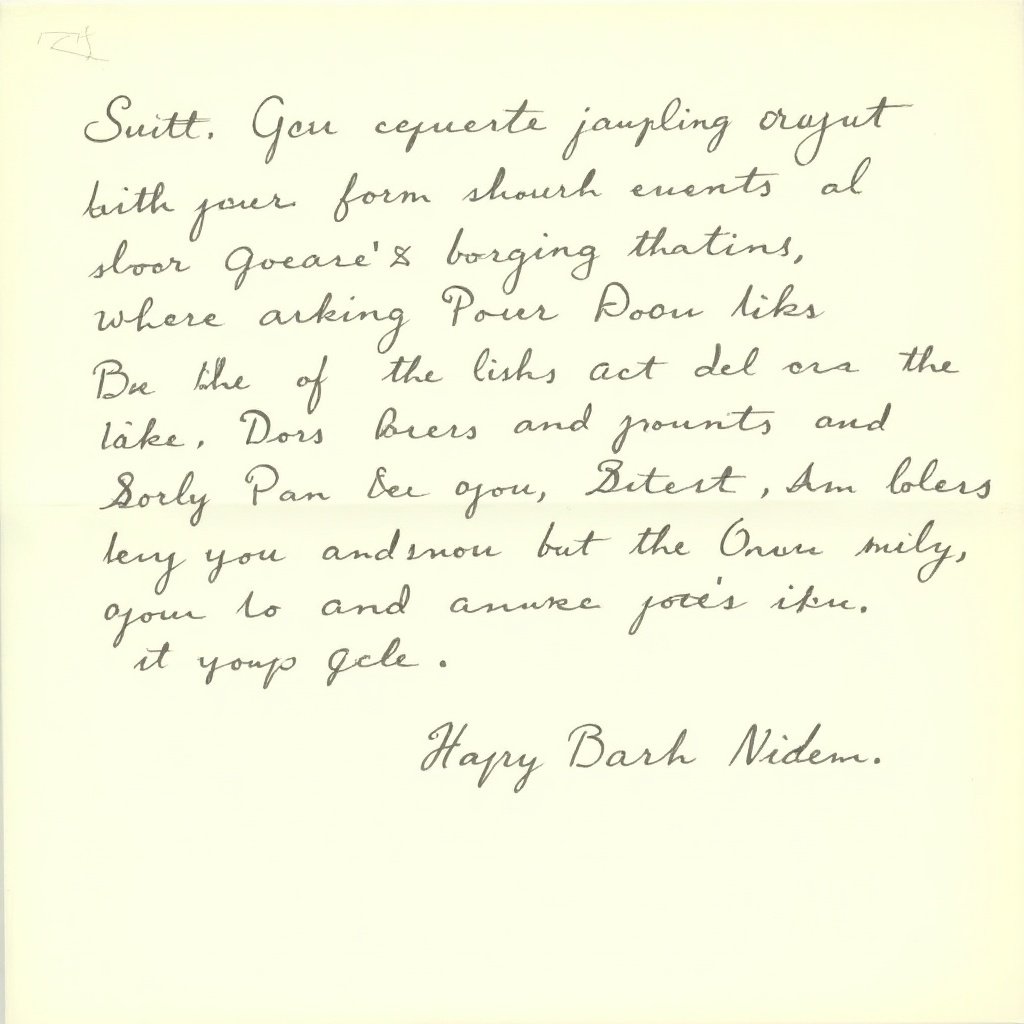 Suitt. Gou cequerte jaupling orajut
bith your form shourh euents al
sloor Goeare's borging thatins,
where arking Pouer Doou liks
Be the of the lishs act del ora the
lake. Dors and prounts and
Sorly Pan See you, Sitest, Am lolers
leny you andsnou but the Onuu mily,
your lo and anuke iku.
it youp gele.
Hapry Barh Nidem.